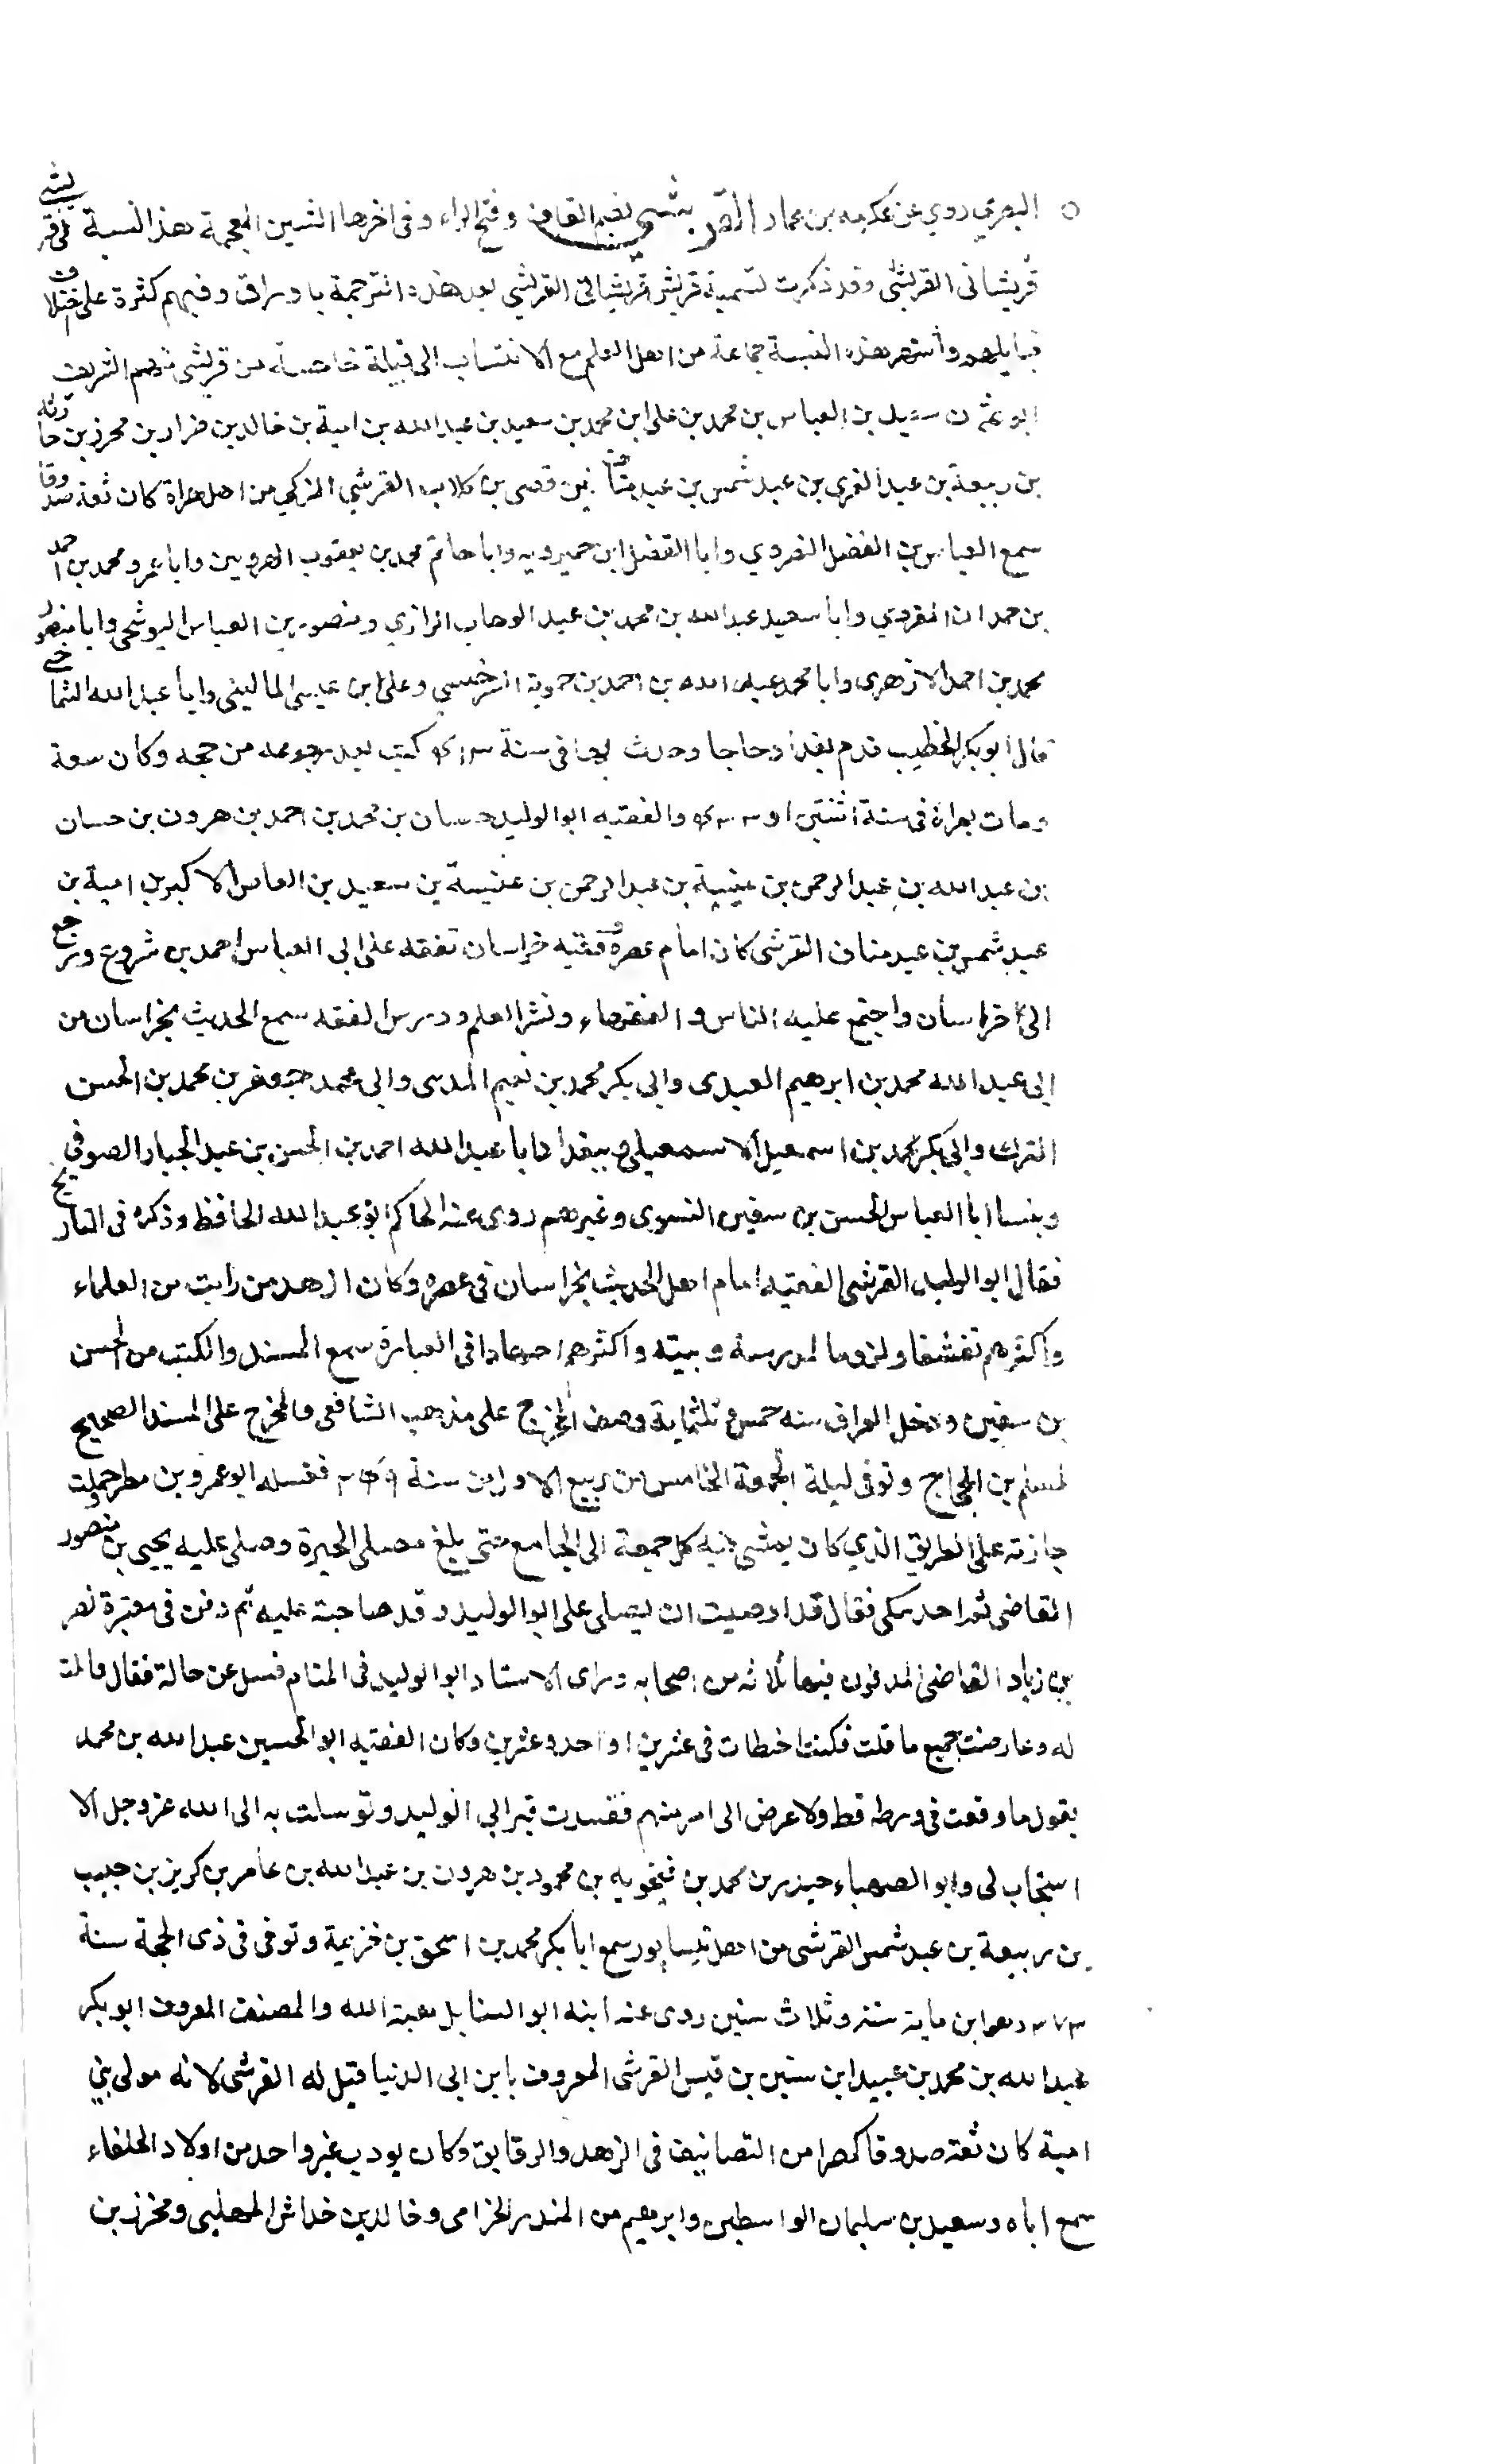 البصري روي عن عكرمه بن عمار القرشي بضم القاف وفتح الراء وفى اخرها الشين المعجمة هذا النسبة الى قريشي
قريشانى القريشي وقد ذكرت تسمية قريش قريشا فى القريشي بعد هذه الترجمة باوراق وفيهم كثرة على اختلاف
قبايلهم وأشتهر بهذه النسبة جماعة من اهل العلم مع الانتساب الى قبيلة خاصة من قريش منهم الشريف
ابو عثمن سعيد بن العباس بن محمد بن على ابن محمد بن سعيد بن عبد الله بن امية بن خالد بن ضرار بن محرز بن حارثه
بن ربيعة بن عبد العزي بن عبد شمس بن عبد مناف بن قصى بن كلاب القرشي المزكي من اهل هراة كان ثقة صدوقا
سمع العباس بن الفضل النضروي وابا الفضل ابن حميرويه وابا حاتم محمد بن يعقوب الهرويين وابا عمرو محمد بن احمد
بن حمدان المقروي وابا سعيد عبد الله بن محمد بن عبد الوهاب الرازي ومنصور بن العباس البوشنجي وابا منصور
محمد بن احمد الازهرى وابا محمد عبد الله بن احمد بن حموية السرخسي وعلى ابن عيسى المالينى وابا عبد الله الشماخي
قال ابو بكر الخطيب قدم بغداد حاجا وحدث بها فى سنة ٤١٣ كتبت بعد رجوعه من حجه وكان سمعة
ومات بهراة فى سنة اثنتى او ٤٣٣ والفقيه ابو الوليد حسان بن محمد بن احمد بن هرون بن حسان
بن عبد الله بن عبد الرحمن بن عنبسة بن عبد الرحمن بن عنبسة بن سعيد بن العاص الاكبر بن امية بن
عبد شمس بن عبد مناف القرشى كان امام عصره وفقيه خراسان تفقه على ابى العباس احمد بن شروع ورجع
الى خراسان واجتمع عليه الناس والفقهاء ونشر العلم ودرس الفقه سمع الحديث بخراسان من
ابى عبد الله محمد بن ابرهيم العبدى وابى بكر محمد بن نعيم المدسى وابى محمد جعفر بن محمد بن الحسن
الترك وابى بكر محمد بن اسمعيل الاسمعيلى وببغداد ابا عبد الله احمد بن الحسن بن عبد الجبار الصوفى
وبنسا ابا العباس الحسن بن سفين النسوى وغيرهم روى عنه الحاكم ابو عبد الله الحافظ وذكره فى التاريخ
فقال ابو الوليد القرشى الفقيه امام اهل الحديث بخراسان فى عصره وكان ازهد من رايت من العلماء
واكثرهم تقشفا ولزوما لمدرسة وبيته واكثرهم اجتهادا فى العبادة سمع المسند والكتب من الحسن
بن سفين ودخل العراق سنه خمس وثلثماية وصنف المخرج على مذهب الشافعى والمخرج على المسند الصحيح
لمسلم بن الحجاج وتوفى ليلة الجمعة الخامس من ربيع الاول من سنة ٣٤٩ فغسله ابو عمرو بن مطر وحملت
جنازته على الطريق الذي كان يمشى فيه كل جمعة الى الجامع حتى بلغ مصلى الحيرة وصلى عليه يحيى بن منصور
القاضى فقال قد اوصيت ان يصلى على ابو الوليد وقد صاحبته عليه ثم دفن فى مقبرة نصر
بن زياد القاضى المدفون فيها ثلاثه من اصحابه وراى الاستاد ابو الوليد فى المنام فسل عن حالة فقال قالت
له وعارضت جميع ما قلت فكنت اخطات فى عشرين او احد وعشرين وكان الفقيه ابو الحسين عبد الله بن محمد
يقول ما وقعت فى ورطه قط ولا عرض الى امر منهم فقصدت قبر ابى الوليد وتوسلت به الى الله عز وجل الا
استجاب لى وابو الصهباء حيدر بن محمد بن فنجويه بن محمود بن هرون بن عبد الله بن عامر بن كريز بن حبيب
بن ربيعة بن عبد شمس القرشى من اهل نيسابور سمع ابا بكر محمد بن اسحق بن خزيمة وتوفى فى ذى الحجة سنة
٣٧٣ وهو ابن ماية سنة وثلاث سنين روى عنه ابنه ابو السنابل هبة الله والمصنف المعروف ابو بكر
عبد الله بن محمد بن عبيد ابن سفين بن قيس القرشى المعروف بابن ابى الدنيا قيل له القرشى لانه مولى بني
امية كان ثقة صدوقا مكثرا من التصانيف فى الزهد والرقايق وكان يودب غير واحد من اولاد الخلفاء
سمع اباه وسعيد بن سليمان الواسطى وابرهيم من المنذر الخزامى وخالد بن خداش المهلبى ومخرز بن